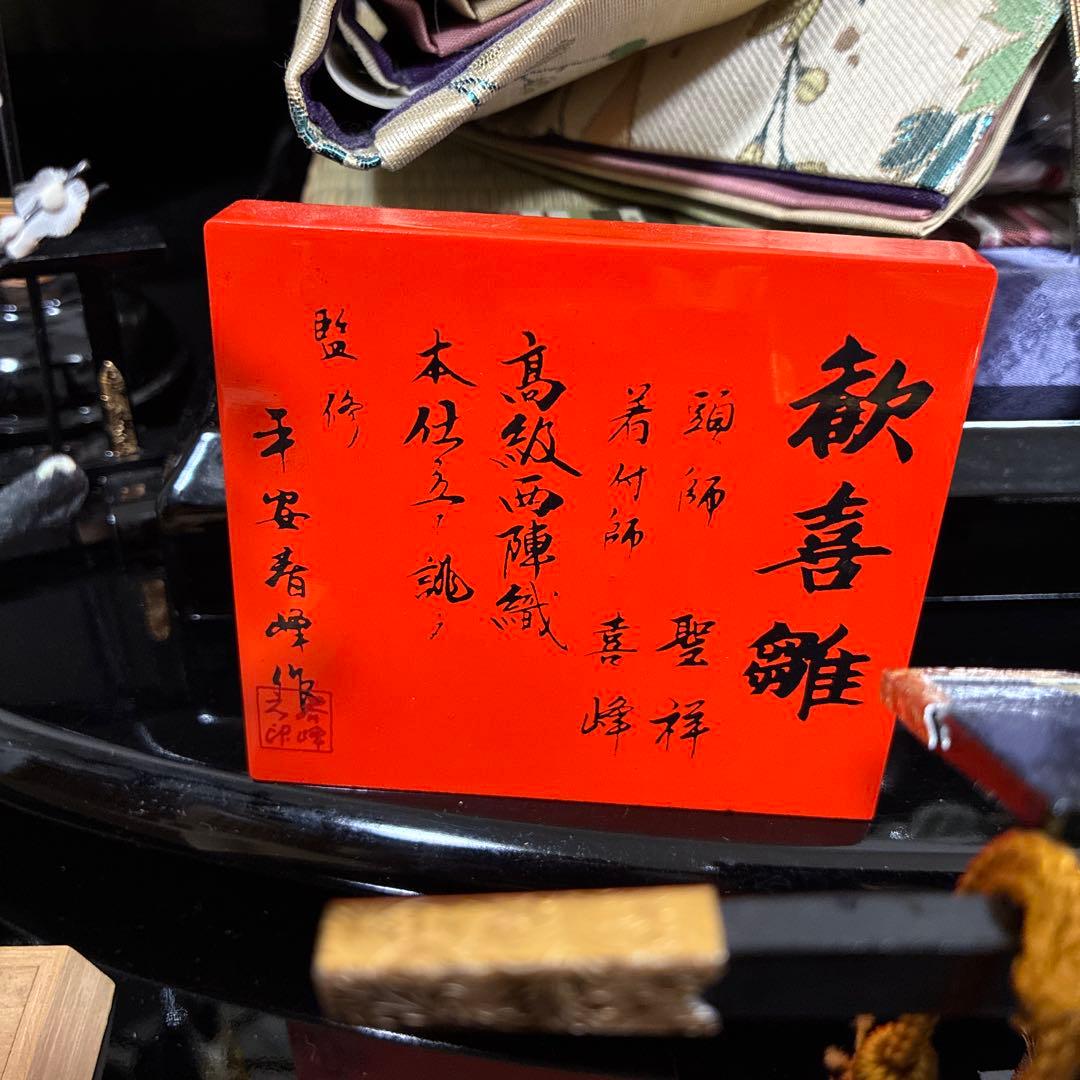 歓喜雛
頭師 聖祥
着付師 喜峰
高級西陣織
本仕立 誂
監修
平安春峰作
春峰之印